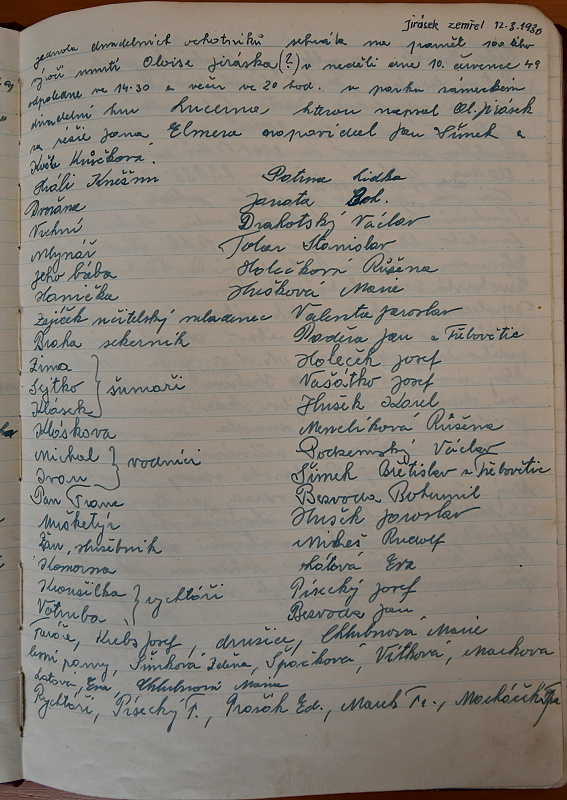 Jirásek zemřel 12.3.1930
jednota divadelních ochotníků sehrála na paměť 100 letého
výročí úmrtí Aloise Jiráska (?) v neděli dne 10. července 49
odpoledne ve 14.30 a večer ve 20 hod. v parku zámeckém
divadelní hru Lucerna kterou napsal Al. Jirásek
za režie Jana Elmera napovídal Jan Šimek a
Květa
Mladá Kněžna Patrna Lidka
Dvořan Janata Boh.
Vrchní Drahotský Václav
Mlynář Tolar Stanislav
jeho bába Holečková Růžena
Hanička Hušková Marie
Zajíček učitelský mládenec Valenta Jaroslav
Braha sekerník Paděra Jan z Třebovětic
Zima Holeček Josef
Sejtko } šumaři Vašátko Josef
Klásek Hušek Karel
Klásková Menclíková Růžena
Michal } vodníci Podzemský Václav
Ivan Šimek Břetislav z Třebovětic
Pan Franc Bezvoda Bohumil
Mušketýr Hušek Jaroslav
Žan, služebník Mikeš Rudolf
Komorna Látová Eva
Kroužilka } rychtáři Písecký Josef
Votruba Bezvoda Jan
Krebs Josef, družice, Chlubnová Marie
lesní panny, Šimková Zdena, Špačková, Vítková, Machova
Látová, Eva, Chlubnová Marie
Rychtáři, Písecký F., Prošek Ed., Marek Fr.,